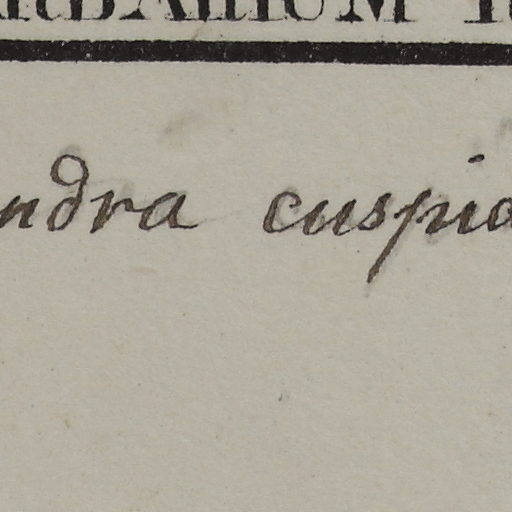 HERBARIUM
ndra cuspid